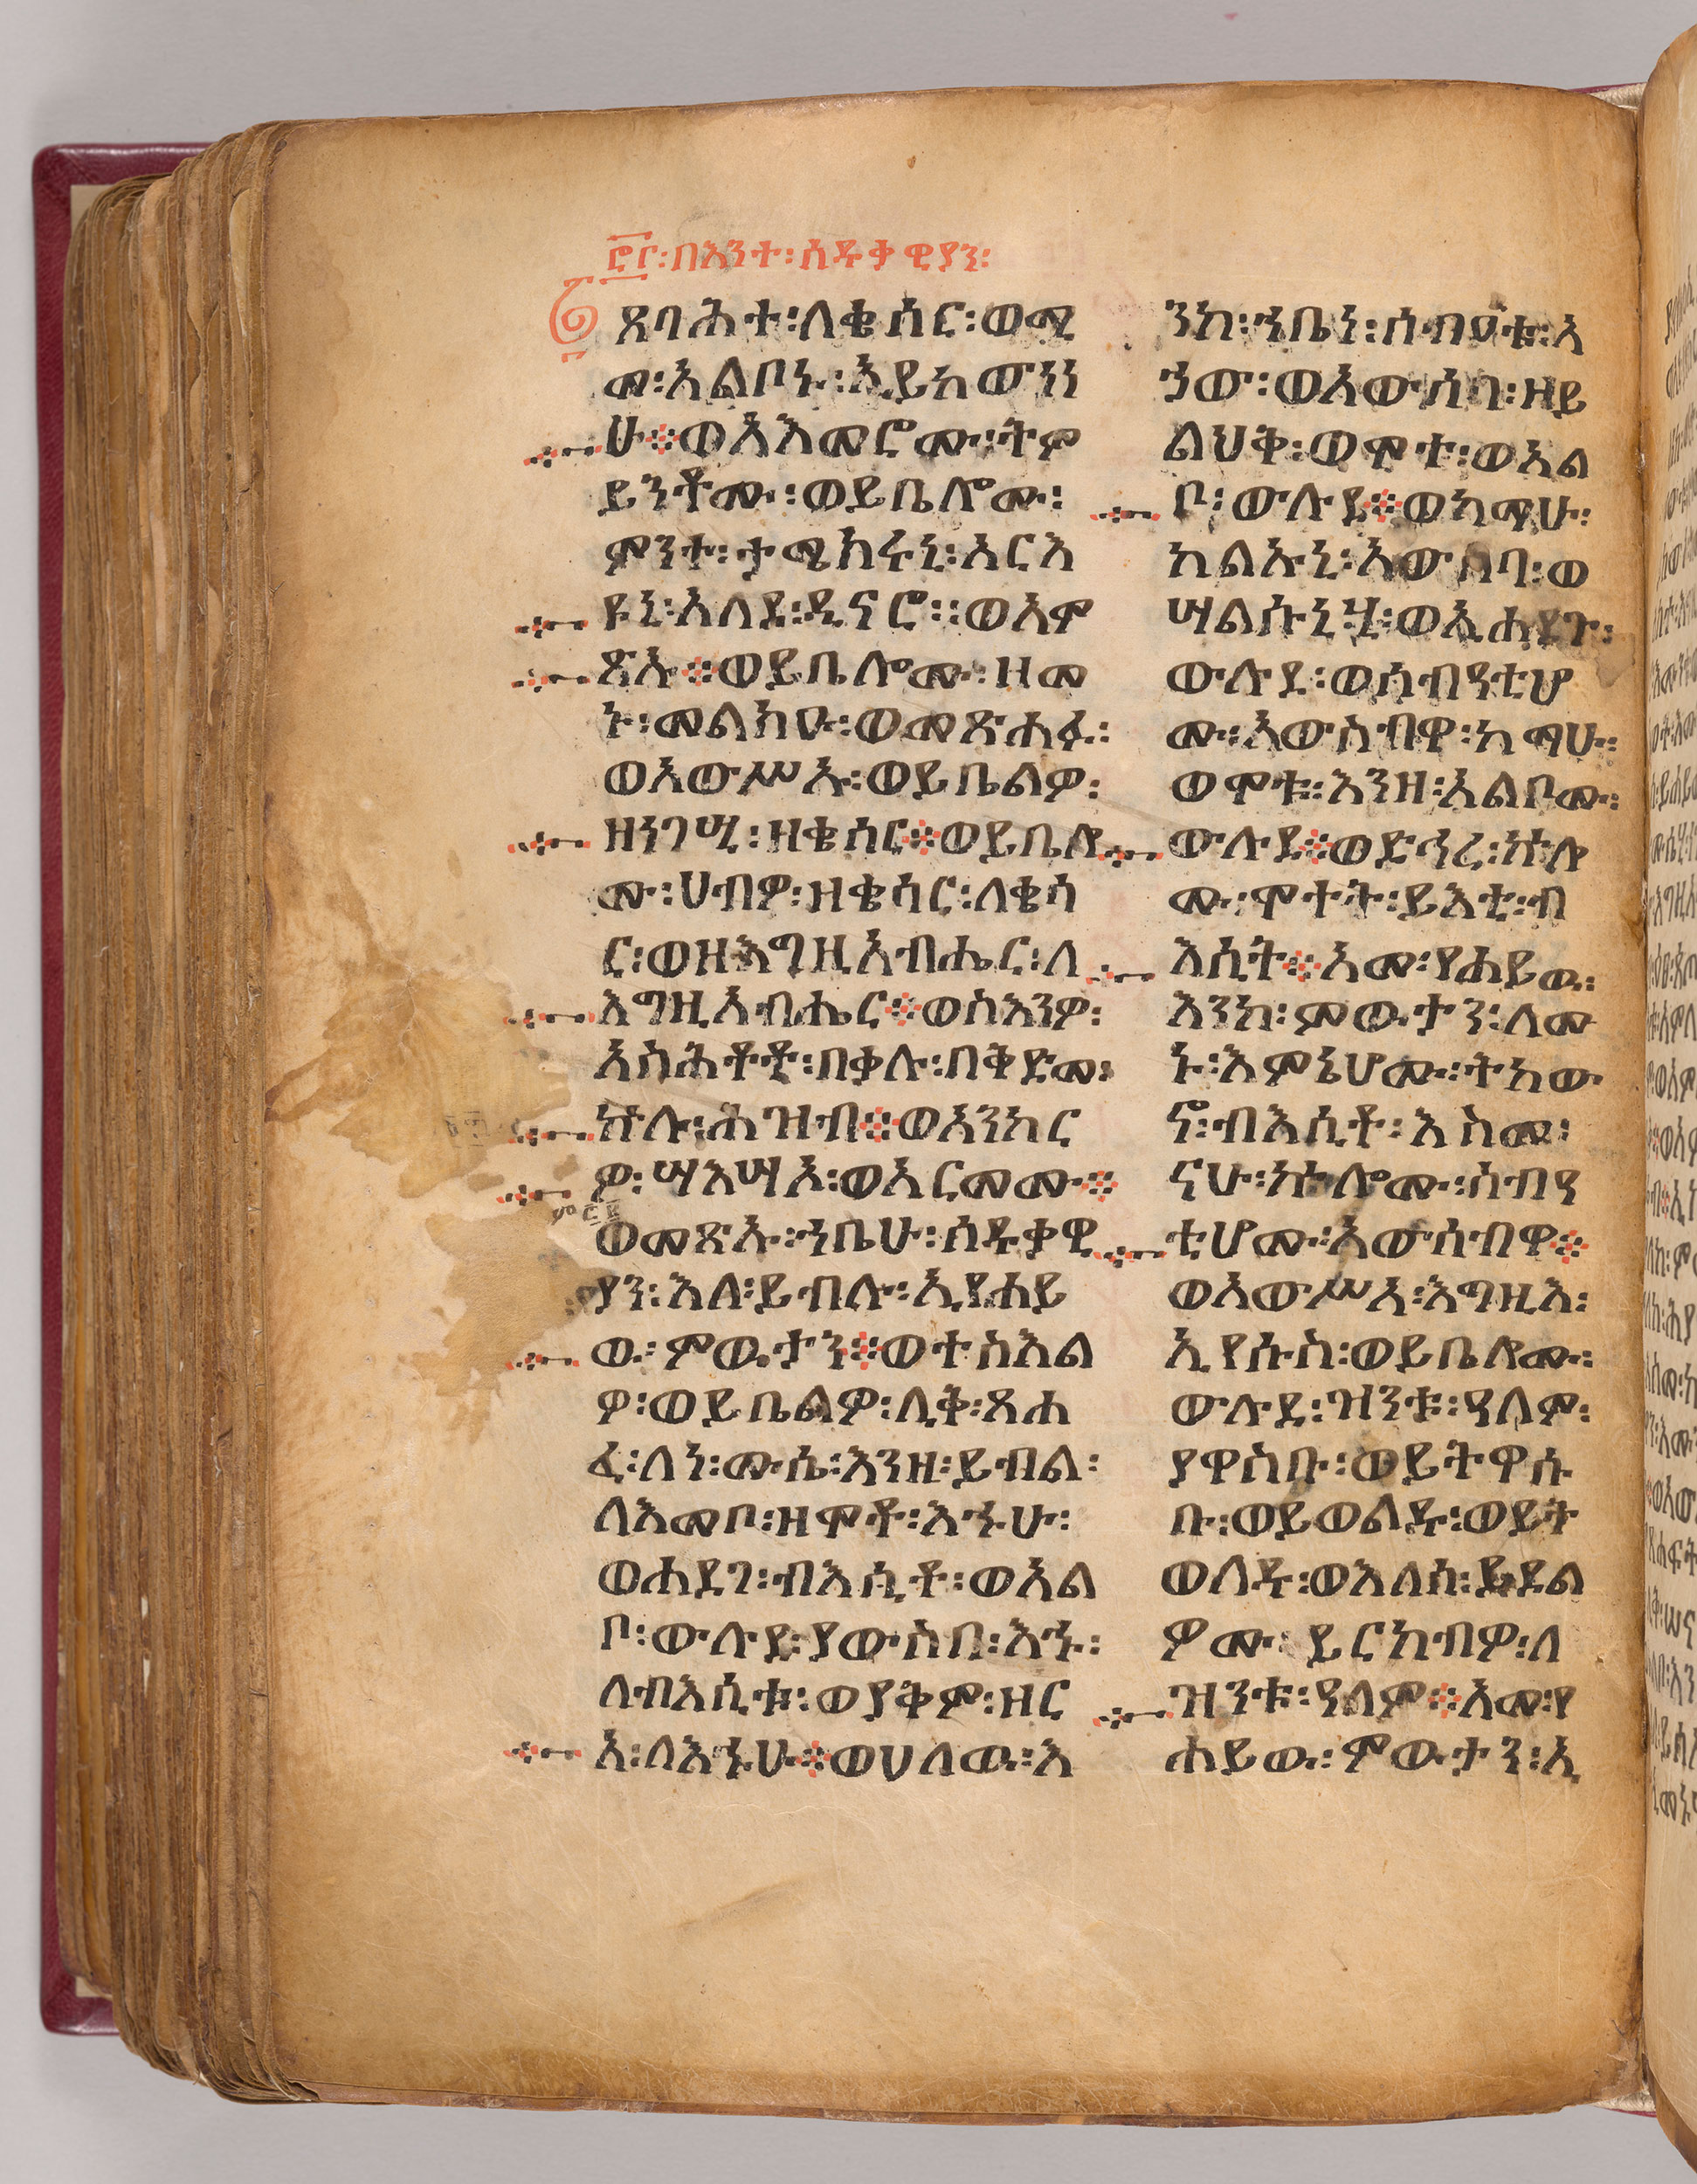 በእንተ፡ሰዱቃዊያን፡
ጸባሕተ፡ለቄሳር፡ወሚ
መ፡አልቦኑ፡ኢይከውነነ
ሁ፨ወአእመሮሙ፡ትም
ይንቶሙ፡ወይቤሎሙ፡
ምንተ፡ታሜክሩኒ፡አርእ
ዩኒ፡አለደ፡ዲናሮ፡፡ወአም
ጽኡ፨ወይቤሎሙ፡ዘመ
ኑ፡መልክዑ፡ወመጽሐፉ፡
ወአውሥኡ፡ወይቤልዎ፡
ዘነገሢ፡ዘቄሳር፨ወይቤሎ
ሙ፡ሀብዎ፡ዘቄሳር፡ለቄሳ
ር፡ወዘእግዚአብሔር፡ለ
እግዚአብሔር፨ወስእንዎ፡
አስሕቶቶ፡በቃሉ፡በቅድመ፡
ኵሉ፡ሕዝብ፨ወአንከር
ዎ፡ሣእሣኦ፡ወአርመሙ፨
ወመጽኡ፡ኀቤሁ፡ሰዱቃዊ
ያን፡እለ፡ይብሉ፡ኢየሐይ
ዉ፡ምዉታን፨ወተስእል
ዎ፡ወይቤልዎ፡ሊቅ፡ጸሐ
ፈ፡ለነ፡ሙሴ፡እንዘ፡ይብል፡
ለእመቦ፡ዘሞቶ፡እኁሁ፡
ወሐደገ፡ብእሲቶ፡ወአል
ቦ፡ውሉደ፡ያውስብ፡እኁ፡
ለብእሲቱ፡ወያቅም፡ዘር
አ፡ለእኁሁ፨ወሀለዉ፡እ
ንከ፡ኀቤነ፡ሰብዐቱ፡አ
ኀው፡ወአውሰበ፡ዘይ
ልህቅ፡ወሞተ፡ወአል
ቦ፡ውሉደ፨ወከማሁ፡
ካልኡኒ፡አውሰባ፡ወ
ሣልሱኒሂ፡ወኢሐደጉ፡
ውሉደ፡ወሰብዓቲሆ
ሙ፡አውስብዋ፡ከማሁ፡
ወሞቱ፡እንዘ፡አልቦሙ፡
ውሉደ፨ወድኅረ፡ኵሎ
ሙ፡ሞተት፡ይእቲ፡ብ
እሲት፨አመ፡የሐይዉ፡
እንከ፡ምዉታን፡ለመ
ኑ፡እምኔሆሙ፡ትከው
ኖ፡ብእሲቶ፡እስመ፡
ናሁ፡ኵሎሙ፡ስብዓ
ቲሆሙ፡አውሰብዋ፨
ወአውሥአ፡እግዚእ፡
ኢየሱስ፡ወይቤሎሙ፡
ውሉደ፡ዝንቱ፡ዓለም፡
ያዋስቡ፡ወይትዋሰ
ቡ፡ወይወልዱ፡ወይት
ወለዱ፡ወእለሰ፡ይደል
ዎሙ፡ይርከብዎ፡ለ
ዝንቱ፡ዓለም፨አመ፡የ
ሐይዉ፡ምዉታን፡ኢ